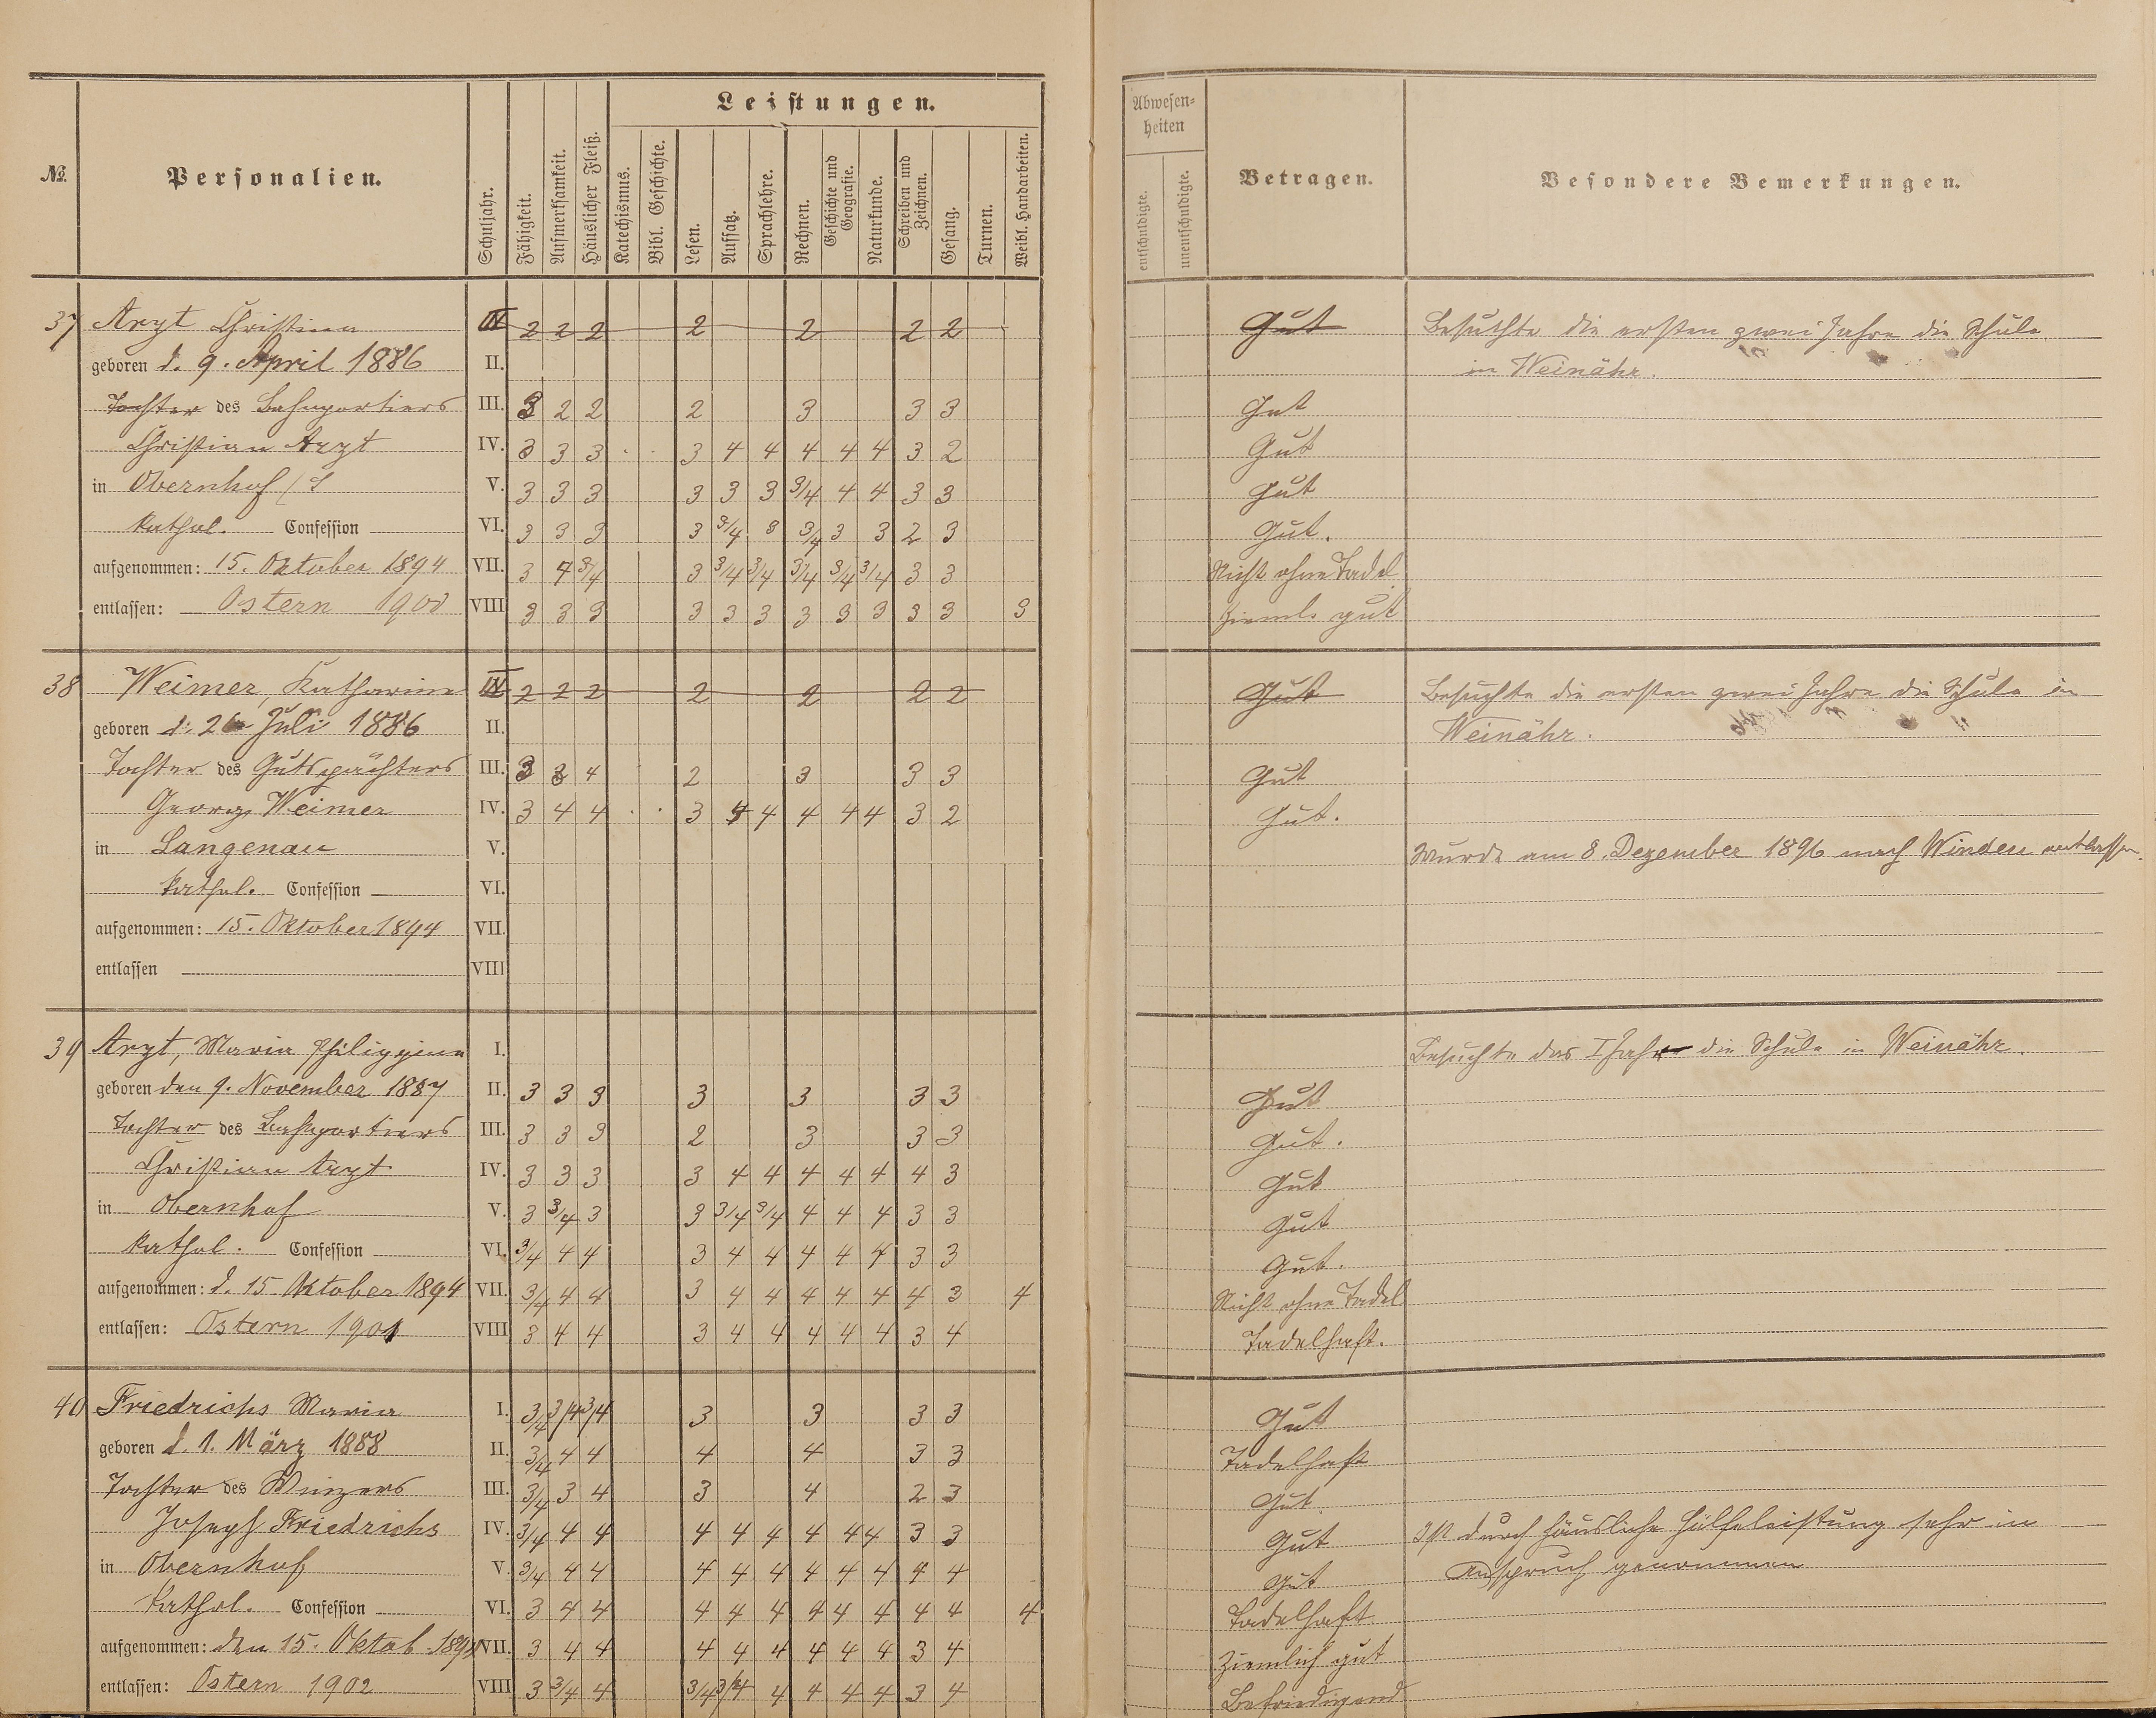 Leistungen.
Abwesen-
heiten
№.
Personalien.
Schuljahr.
Fähigkeit.
Aufmerksamkeit.
Häuslicher Fleiß.
Katechismus.
Bibl. Geschichte.
Lesen.
Aufsatz.
Sprachlehre.
Rechnen.
Geschichte und
Geografie.
Naturkunde.
Schreiben und
Zeichnen.
Gesang.
Turnen.
Weibl. Handarbeiten.
entschuldigte.
unentschuldigte.
Betragen.
Besondere Bemerkungen.
37 Arzt Christina 2 2 2 2 2 2 2 Gut Besuchte die ersten zwei Jahre die Schule
geboren d. 9. April 1886 II. in Weinähr.
Tochter des Bahnportiers III. 3 2 2 2 3 3 3 Gut
Christian Arzt IV. 3 3 3 3 4 4 4 4 4 3 2 Gut
in Obernhof / L V. 3 3 3 3 3 3 3/4 4 4 3 3 Gut
kathol. Confession VI. 3 3 3 3 3/4 3 3/4 3 3 2 3 Gut.
aufgenommen: 15. Oktober 1894 VII. 3 4 3/4 3 3/4 3/4 3/4 3/4 3/4 3 3 Nicht ohne Tadel
entlassen: Ostern 1900 VIII 3 3 3 3 3 3 3 3 3 3 3 3 Zieml. gut
38 Weimer, Katharina 2 2 2 2 2 2 2 Gut Besuchte die ersten zwei Jahre die Schule in
geboren d. 26 Juli 1886 II. Weinähr.
Tochter des Gutspächters III. 3 3 4 2 3 3 3 Gut
Georg Weimer IV. 3 4 4 3 4 4 4 4 4 3 2 Gut.
in Langenau V. Wurde am 8. Dezember 1896 nach Winden entlassen.
kathol. Confession VI.
aufgenommen: 15. Oktober 1894 VII.
entlassen VIII
39 Arzt, Maria Philippina I. Besuchte das I Jahr die Schule in Weinähr.
geboren den 9. November 1887 II. 3 3 3 3 3 3 3 Gut
Tochter des Bahnportiers III. 3 3 3 2 3 3 3 Gut.
Christian Arzt IV. 3 3 3 3 4 4 4 4 4 4 3 Gut
in Obernhof V. 3 3/4 3 3 3/4 3/4 4 4 4 3 3 Gut
kathol. Confession VI. 3/4 4 4 3 4 4 4 4 4 3 3 Gut.
aufgenommen: d. 15. Oktober 1894 VII. 3/4 4 4 3 4 4 4 4 4 4 3 4 Nicht ohne Tadel
entlassen: Ostern 1901 VIII 3 4 4 3 4 4 4 4 4 3 4 Tadelhaft.
40 Friedrichs Maria I. 3/4 3/4 3/4 3 3 3 3 Gut
geboren d. 1. März 1888 II. 3/4 4 4 4 4 3 3 Tadelhaft
Tochter des Winzers III. 3/4 3 4 3 4 2 3 Gut
Joseph Friedrichs IV. 3/4 4 4 4 4 4 4 4 4 3 3 Gut Ist durch häusliche Hülfeleistung sehr in
in Obernhof V. 3/4 4 4 4 4 4 4 4 4 4 4 Gut Anspruch genommen
Kathol. Confession VI. 3 4 4 4 4 4 4 4 4 4 4 4 Tadelhaft
aufgenommen: den 15. Oktob. 1894 VII. 3 4 4 4 4 4 4 4 4 3 4 Ziemlich gut
entlassen: Ostern 1902 VIII 3 3/4 4 3/4 3/4 4 4 4 4 3 4 Befriedigend